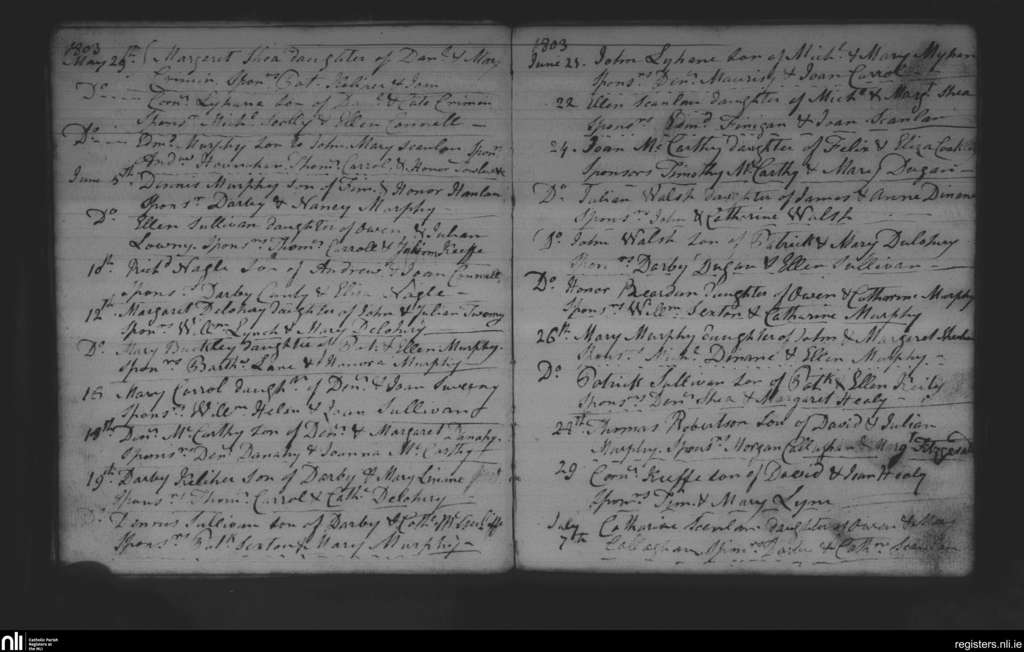 1803
May 29th Margaret Shea daughter of Danl. & Mary
Cronin Sponrs Pat Keliher & Joan
Do Cornl. Lyhane son of & Cate Cronin
Sponsrs Michl. & Ellen Connell
Do Edmd. Murphy son to John Mary Scanlan Sponrs
Andrw Hounihan Thoms. Carrol & Honor
June 5th Dinnis Murphy son of Tim. & Honor Hanlan
Sponsrs Darby & Nancy Murphy
Do Ellen Sullivan daughter of Owen & Julian
Lowny. Sponsrs Thoms. Carroll & Keeffe
10th Richd. Nagle Son of Andrew & Joan Connell
Sponsrs Darby & Eliza Nagle
12th Margaret Delohay daughter of John & Julian Twomy
Sponrs Wm. Lynch & Mary Delohery
Do Mary Buckley daughter of Pat. & Ellen Murphy.
Sponrs Barthw. Lane & Hanora Murphy
16 Mary Carrol daughtr of Denis. & Joan Tuveny
Sponsrs Willm. Helen & Joan Sullivan
18th Denis. McCarthy son of Denis. & Margaret Danahy.
Sponsors Denis. Danahy & Joanna McCarthy
19th Darby Keliher Son of Darby & Mary Linane
Sponsrs Thoms. Carrol & Cath. Delohery
Do Dennis Sullivan son of Darby & Cath.
Sponsrs Patk. Sexton & Mary Murphy
1803
June 21. John Lyhane son of Michl. & Mary
Sponsrs Denis. & Joan Carrol
22 Ellen Scanlan daughter of Michl. & Margt. Shea
Sponsrs Edmd. Finigan & Joan Scanlan
24. Joan McCarthy daughter of Felix & Eliza
Sponsors Timothy McCarthy & Mary Dugan
Do Julian Walsh daughter of James & Anne Dinane
Sponsrs John & Catherine Walsh
Do John Walsh son of Patrick & Mary Dulohery
Sponsrs Darby Dugan & Ellen Sullivan
Do Honor Reardun daughter of Owen & Catherine Murphy
Sponsrs Willm. Sexton & Catharine Murphy
26th Mary Murphy daughter of John & Margaret
Sponsrs Michl. Dinane & Ellen Murphy
Do Patrick Sullivan son of Patk. & Ellen Reily
Sponsrs Denis. Shea & Margaret Healy
28th Thomas Robertson son of David & Julian
Murphy. Sponsrs Morgan Callaghan & Margt. Fitzgerald
29 Corns. Keeffe son of David & Joan Healy
Sponrs Tim. & Mary Lyne
July Catharine Scanlan daughter of Owen & Mary
7th Callaghan Sponrs & Cathn. Scanlan
nli
Catholic Parish
Registers at
the NLI
registers.nli.ie